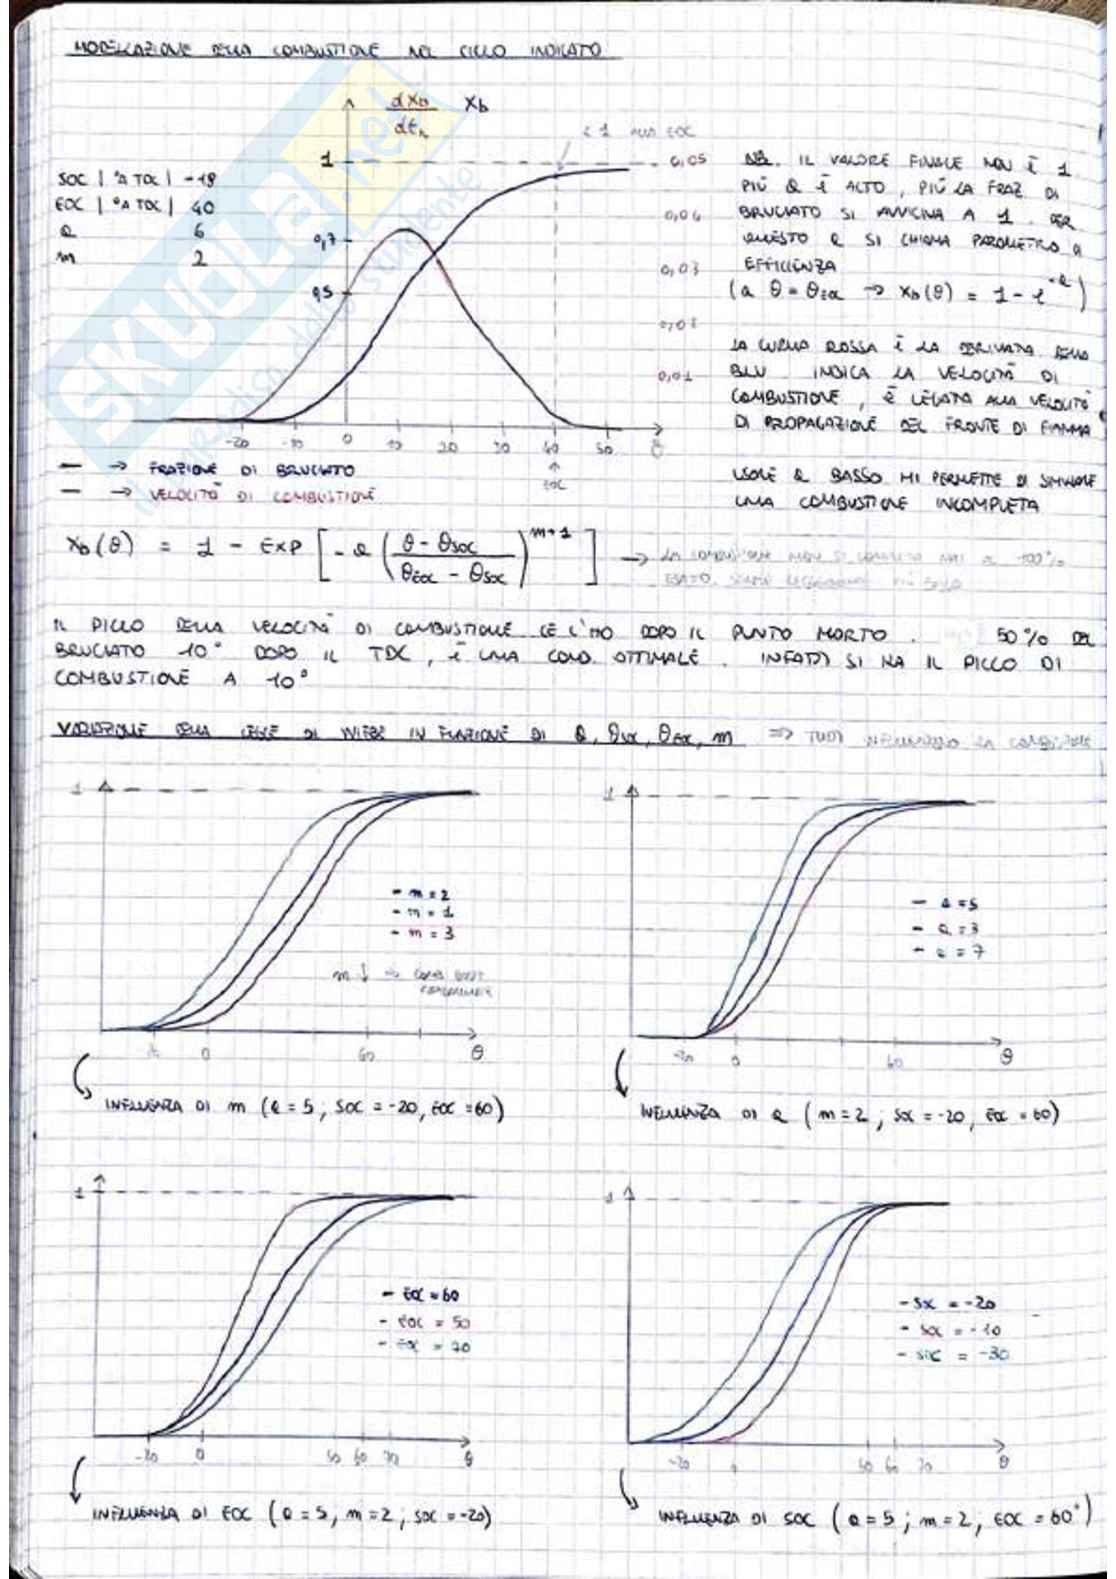 MODELLAZIONE DELLA COMBUSTIONE NEL CICLO INDICATO
dXb
dth
Xb
< 1 ALLA EOC
SOC | °ATDC | -18
EOC | °ATDC | 40
a 6
m 2
1
0,7
0,5
0,05
0,04
0,03
0,02
0,01
-20 -10 0 10 20 30 40 50 θ
EOC
NB. IL VALORE FINALE NON È 1
PIÙ a È ALTO, PIÙ LA FRAZ. DI
BRUCIATO SI AVVICINA A 1. PER
QUESTO a SI CHIAMA PARAMETRO DI
EFFICIENZA
(a θ = θEOC → Xb(θ) = 1 - e^-a)
LA CURVA ROSSA È LA DERIVATA DELLA
BLU INDICA LA VELOCITÀ DI
COMBUSTIONE, È LEGATA ALLA VELOCITÀ
DI PROPAGAZIONE DEL FRONTE DI FIAMMA
USARE a BASSO MI PERMETTE DI SIMULARE
UNA COMBUSTIONE INCOMPLETA
— → FRAZIONE DI BRUCIATO
— → VELOCITÀ DI COMBUSTIONE
Xb(θ) = 1 - EXP [-a (θ - θSOC / θEOC - θSOC)^m+1]
→ LA COMBUSTIONE NON SI COMPLETA MAI AL 100%
IL PICCO DELLA VELOCITÀ DI COMBUSTIONE CE L'HO DOPO IL PUNTO MORTO. 50% DEL
BRUCIATO 10° DOPO IL TDC, È UNA COND. OTTIMALE. INFATTI SI HA IL PICCO DI
COMBUSTIONE A 10°
VARIAZIONE DELLA LEGGE DI WIEBE IN FUNZIONE DI a, θSOC, θEOC, m ⇒ TUTTI INFLUENZANO LA COMBUSTIONE
1
- m = 2
- m = 1
- m = 3
m ↓
0 60 θ
INFLUENZA DI m (a = 5; SOC = -20, EOC = 60)
1
- a = 5
- a = 3
- a = 7
-20 0 60 θ
INFLUENZA DI a (m = 2; SOC = -20, EOC = 60)
1
- EOC = 60
- EOC = 50
- EOC = 70
-20 0 50 60 70 θ
INFLUENZA DI EOC (a = 5, m = 2; SOC = -20)
1
- SOC = -20
- SOC = -10
- SOC = -30
-20 0 50 60 70 θ
INFLUENZA DI SOC (a = 5; m = 2; EOC = 60°)
SKUOLA.net
il paradiso dello studente